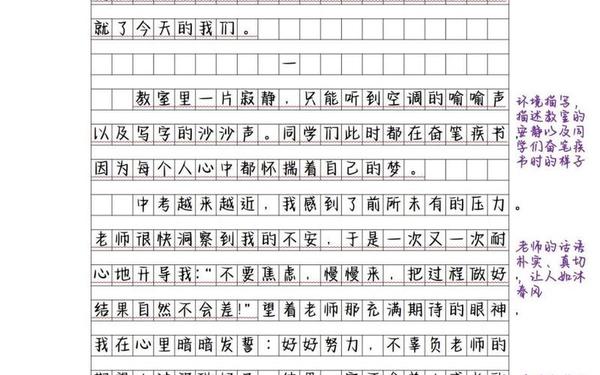 就了今天的我们。
一
教室里一片寂静，只能听到空调的喻喻声
以及写字的沙沙声。同学们此时都在奋笔疾书，
因为每个人心中都怀揣着自己的梦。
中考越来越近，我感到了前所未有的压力。
老师很快洞察到我的不安，于是一次又一次耐
心地开导我：“不要焦虑，慢慢来，把过程做好，
结果自然不会差！”望着老师那充满期待的眼神，
我在心里暗暗发誓：好好努力，不辜负老师的
环境描写，
描述教室的
安静以及同
学们奋笔疾
书时的样子
老师的话语
朴实、真切
，让人如沐
春风